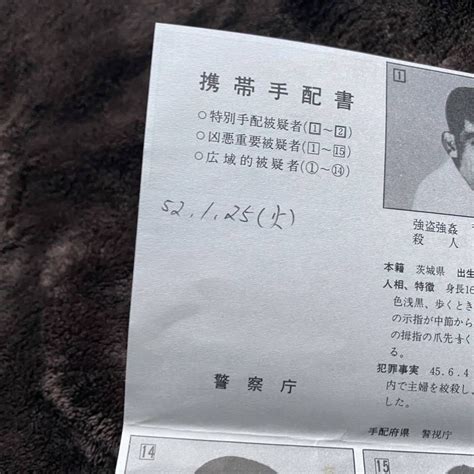 携帯手配書
○特別手配被疑者(1~2)
○凶悪重要被疑者(1~15)
○広域的被疑者(①~⑭)
52.1.25(火)
警察庁
1
強盗強姦
殺人
本籍 茨城県 出生
人相、特徴 身長16
色浅黒、歩くとき
の示指が中節から
の拇指の爪先
る。
犯罪事実 45.6.4
内で主婦を絞殺し
した。
手配府県 警視庁
14
15